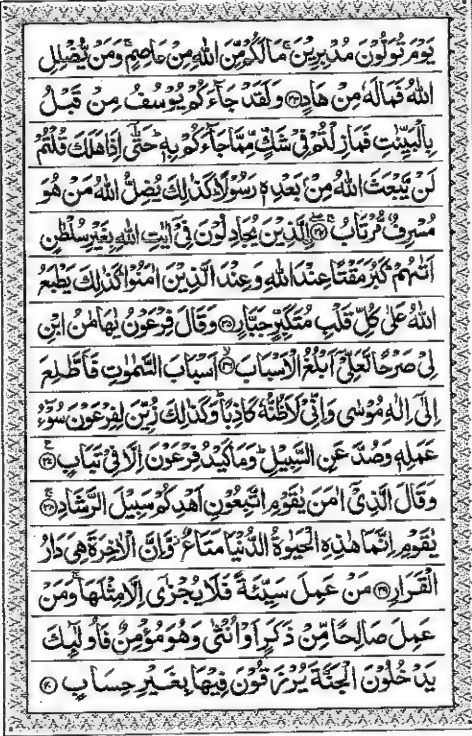 يَوْمَ تُوَلُّوْنَ مُدْبِرِيْنَ ۚ مَا لَكُمْ مِّنَ اللّٰهِ مِنْ عَاصِمٍ ۚ وَمَنْ يُّضْلِلِ
اللّٰهُ فَمَا لَهٗ مِنْ هَادٍ ﴿۳۳﴾ وَلَقَدْ جَآءَكُمْ يُوْسُفُ مِنْ قَبْلُ
بِالْبَيِّنٰتِ فَمَا زِلْتُمْ فِيْ شَكٍّ مِّمَّا جَآءَكُمْ بِهٖ ؕ حَتّٰۤى اِذَا هَلَكَ قُلْتُمْ
لَنْ يَّبْعَثَ اللّٰهُ مِنْۢ بَعْدِهٖ رَسُوْلًا ؕ كَذٰلِكَ يُضِلُّ اللّٰهُ مَنْ هُوَ
مُسْرِفٌ مُّرْتَابٌ ﴿۳۴﴾ الَّذِيْنَ يُجَادِلُوْنَ فِيْۤ اٰيٰتِ اللّٰهِ بِغَيْرِ سُلْطٰنٍ
اَتٰىهُمْ ؕ كَبُرَ مَقْتًا عِنْدَ اللّٰهِ وَعِنْدَ الَّذِيْنَ اٰمَنُوْا ؕ كَذٰلِكَ يَطْبَعُ
اللّٰهُ عَلٰى كُلِّ قَلْبِ مُتَكَبِّرٍ جَبَّارٍ ﴿۳۵﴾ وَقَالَ فِرْعَوْنُ يٰهَامٰنُ ابْنِ
لِيْ صَرْحًا لَّعَلِّيْۤ اَبْلُغُ الْاَسْبَابَ ﴿۳۶﴾ اَسْبَابَ السَّمٰوٰتِ فَاَطَّلِعَ
اِلٰۤى اِلٰهِ مُوْسٰى وَاِنِّيْ لَاَظُنُّهٗ كَاذِبًا ؕ وَكَذٰلِكَ زُيِّنَ لِفِرْعَوْنَ سُوْٓءُ
عَمَلِهٖ وَصُدَّ عَنِ السَّبِيْلِ ؕ وَمَا كَيْدُ فِرْعَوْنَ اِلَّا فِيْ تَبَابٍ ﴿۳۷﴾
وَقَالَ الَّذِيْۤ اٰمَنَ يٰقَوْمِ اتَّبِعُوْنِ اَهْدِكُمْ سَبِيْلَ الرَّشَادِ ﴿۳۸﴾
يٰقَوْمِ اِنَّمَا هٰذِهِ الْحَيٰوةُ الدُّنْيَا مَتَاعٌ ؗ وَّاِنَّ الْاٰخِرَةَ هِيَ دَارُ
الْقَرَارِ ﴿۳۹﴾ مَنْ عَمِلَ سَيِّئَةً فَلَا يُجْزٰۤى اِلَّا مِثْلَهَا ۚ وَمَنْ
عَمِلَ صَالِحًا مِّنْ ذَكَرٍ اَوْ اُنْثٰى وَهُوَ مُؤْمِنٌ فَاُولٰٓئِكَ
يَدْخُلُوْنَ الْجَنَّةَ يُرْزَقُوْنَ فِيْهَا بِغَيْرِ حِسَابٍ ﴿۴۰﴾